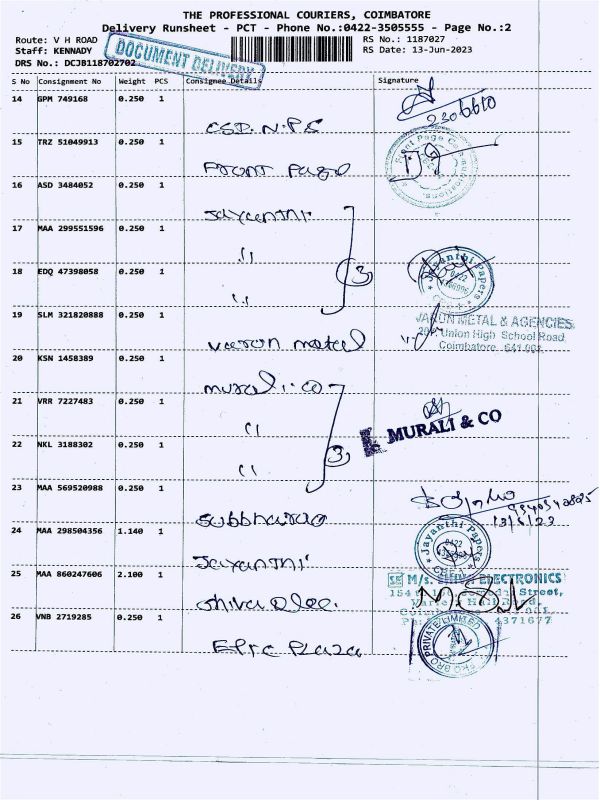 THE PROFESSIONAL COURIERS, COIMBATORE
Delivery Runsheet - PCT - Phone No.:0422-3505555 - Page No.:2
Route: V H ROAD
Staff: KENNADY
DRS No.: DCJB118702702
DOCUMENT DELIVERY
RS No.: 1187027
RS Date: 13-Jun-2023
S No Consignment No Weight PCS Consignee Details Signature
14 GPM 749168 0.250 1
CSD. N.P.S
15 TRZ 51049913 0.250 1
Front Page
Front Page Communications
16 ASD 3484052 0.250 1
Jayanthi
17 MAA 299551596 0.250 1
"
3
Jayanthi Papers
0422
18 EDQ 47398058 0.250 1
"
19 SLM 321820888 0.250 1
METAL & AGENCIES
Union High School Road
Coimbatore
varun metal
20 KSN 1458389 0.250 1
murali . co
21 VRR 7227483 0.250 1
"
MURALI & CO
22 NKL 3188302 0.250 1
"
3
23 MAA 569520988 0.250 1
13/6/23
Subbharao
24 MAA 298504356 1.140 1
Jayanthi Papers
0422
Jayanthi
25 MAA 860247606 2.100 1
M/s. SHIVA ELECTRONICS
Street,
4371677
Shiva Elec.
26 VNB 2719285 0.250 1
PRIVATE LIMITED
Plaza